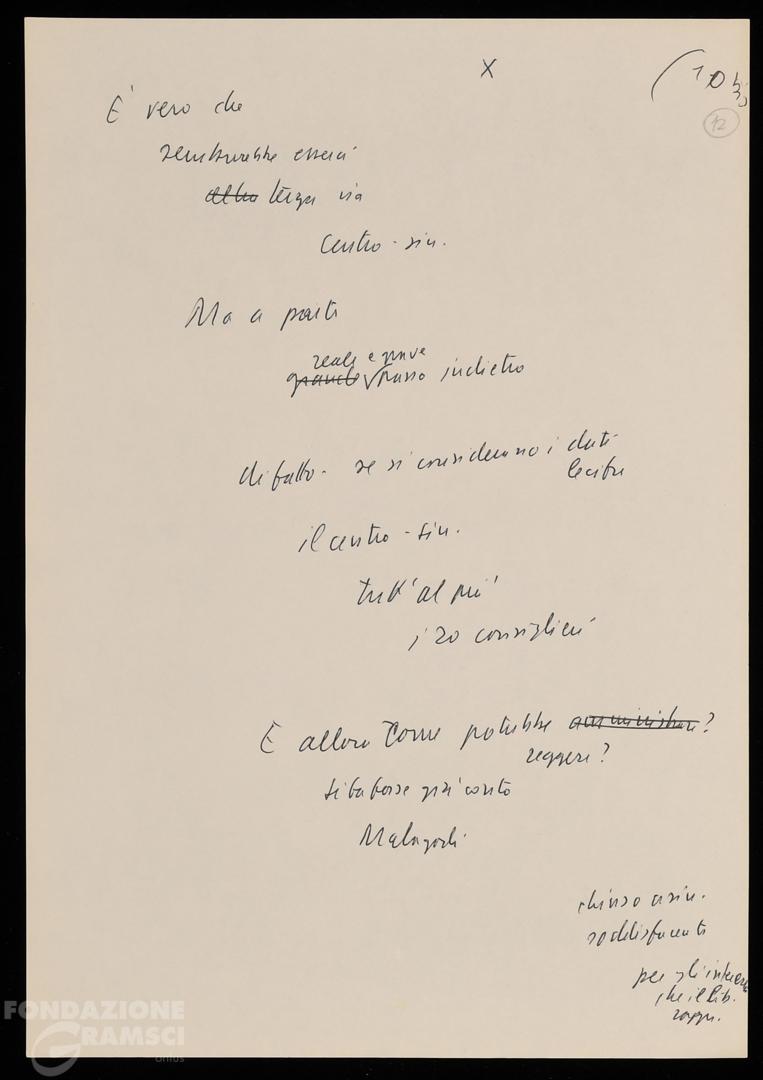 X
(10 bis
12
E' vero che
sembrerebbe esserci
altra terza via
Centro-sin.
Ma a parte
reale e grave
grande passo indietro
di fatto - se si considerano i dati
il centro-sin.
tutt'al più
i 20 consiglieri
E allora come potrebbe amministrare?
reggere?
si fa forse già conto
Malagodi
chiuso a sin.
soddisfacente
per gli interessi
che il lib.
rappr.
FONDAZIONE
GRAMSCI
onlus